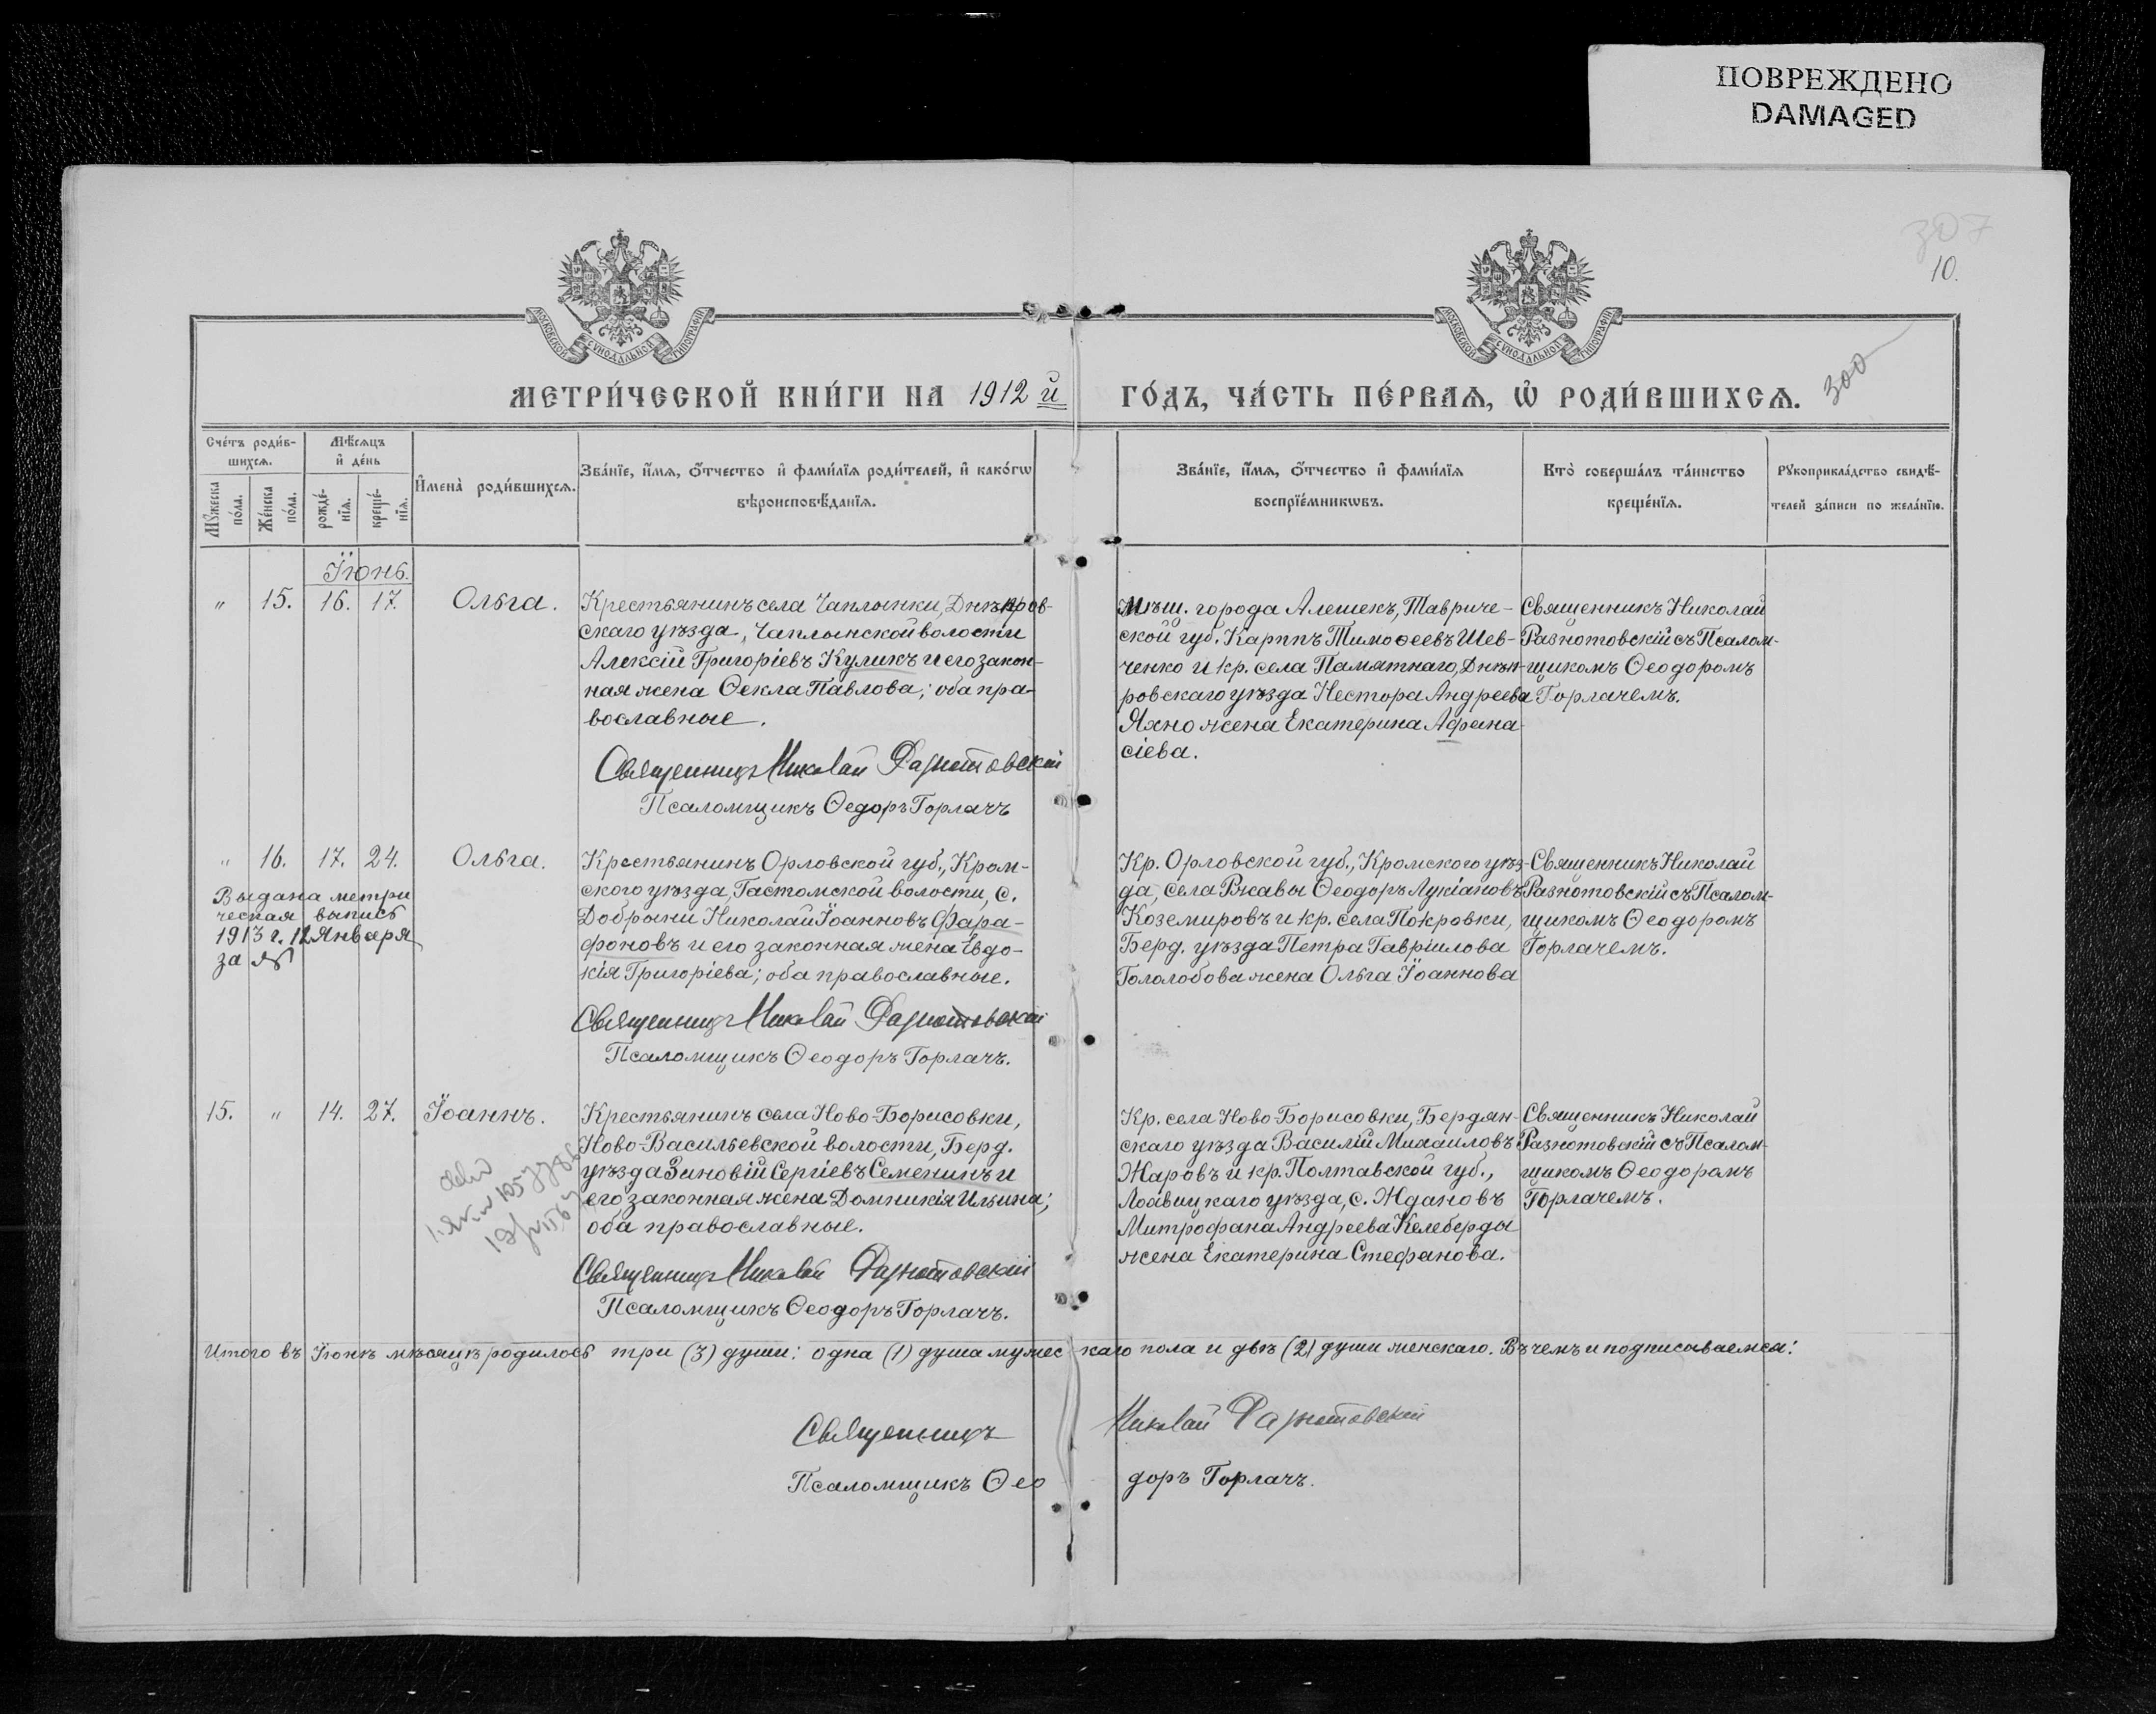 ПОВРЕЖДЕНО
DAMAGED
307
10.
МОСКОВСКОЙ СУНОДАЛЬНОЙ ТИПОГРАФІИ
МОСКОВСКОЙ СУНОДАЛЬНОЙ ТИПОГРАФІИ
МЕТРИ́ЧЕСКОЙ КНИ́ГИ НА 1912 й
ГО́ДЪ, ЧА́СТЬ ПЕ́РВАѦ, Ѡ҆ РОДИ́ВШИХСѦ.
300
Сче́тъ роди́в-
шихсѧ.
Мꙋ́жеска
по́ла.
Же́нска
по́ла.
Мѣ́сѧцъ
и҆ де́нь
рожде́-
нїѧ.
креще́-
нїѧ.
И҆мена̀ роди́вшихсѧ.
Зва́нїе, и҆́мѧ, ѻ҆́тчество и҆ фами́лїѧ роди́телей, и҆ како́гѡ
вѣроисповѣ́данїѧ.
Зва́нїе, и҆́мѧ, ѻ҆́тчество и҆ фами́лїѧ
воспрїе́мникѡвъ.
Кто̀ соверша́лъ та́инство
креще́нїѧ.
Рꙋкоприкла́дство свидѣ́-
телей за́писи по жела́нїю.
Іюнь.
" 15. 16. 17. Ольга.
Крестьянинъ села Чаплынки, Днѣпров-
скаго уѣзда, Чаплынской волости
Алексій Григоріевъ Куликъ и его закон-
ная жена Ѳекла Павлова; оба пра-
вославные.
Священникъ Николай Разнотовскій
Псаломщикъ Ѳедоръ Горлачъ
Мѣщ. города Алешекъ, Тавриче-
ской губ. Карпъ Тимоѳеевъ Шев-
ченко и кр. села Памятнаго, Днѣп-
ровскаго уѣзда Нестора Андреева
Яхно жена Екатерина Афана-
сіева.
Священникъ Николай
Разнотовскій съ Псалом-
щикомъ Ѳеодоромъ
Горлачемъ.
" 16. 17. 24. Ольга.
Выдана метри
ческая выпись
1913 г. 12 Января
за №
Крестьянинъ Орловской губ., Кром-
ского уѣзда, Гастомской волости, с.
Добрыни Николай Іоанновъ Фара-
фоновъ и его законная жена Евдо-
кія Григоріева; оба православные.
Священникъ Николай Разнотовскій
Псаломщикъ Ѳеодоръ Горлачъ.
Кр. Орловской губ., Кромского уѣз-
да, села Ржавы Ѳеодоръ Лукіановъ
Коземировъ и кр. села Покровки,
Берд. уѣзда Петра Гавріилова
Гололобова жена Ольга Іоаннова
Священникъ Николай
Разнотовскій съ Псалом-
щикомъ Ѳеодоромъ
Горлачемъ.
15. " 14. 27. Іоаннъ.
Крестьянинъ села Ново-Борисовки,
Ново-Васильевской волости, Берд.
уѣзда Зиновій Сергіевъ Семенинъ и
его законная жена Домникія Ильина;
оба православные.
Священникъ Николай Разнотовскій
Псаломщикъ Ѳеодоръ Горлачъ.
Кр. села Ново-Борисовки, Бердян-
скаго уѣзда Василій Михаиловъ
Жаровъ и кр. Полтавской губ.,
уѣзда, с. Ждановъ
Митрофана Андреева Келеберды
жена Екатерина Стефанова.
Священникъ Николай
Разнотовскій съ Псалом-
щикомъ Ѳеодоромъ
Горлачемъ.
Итого въ Іюнѣ мѣсяцѣ родилось три (3) души: одна (1) душа мужес каго пола и двѣ (2) души женскаго. Въ чемъ и подписываемся:
Священникъ Николай Разнотовскій
Псаломщикъ Ѳео доръ Горлачъ.